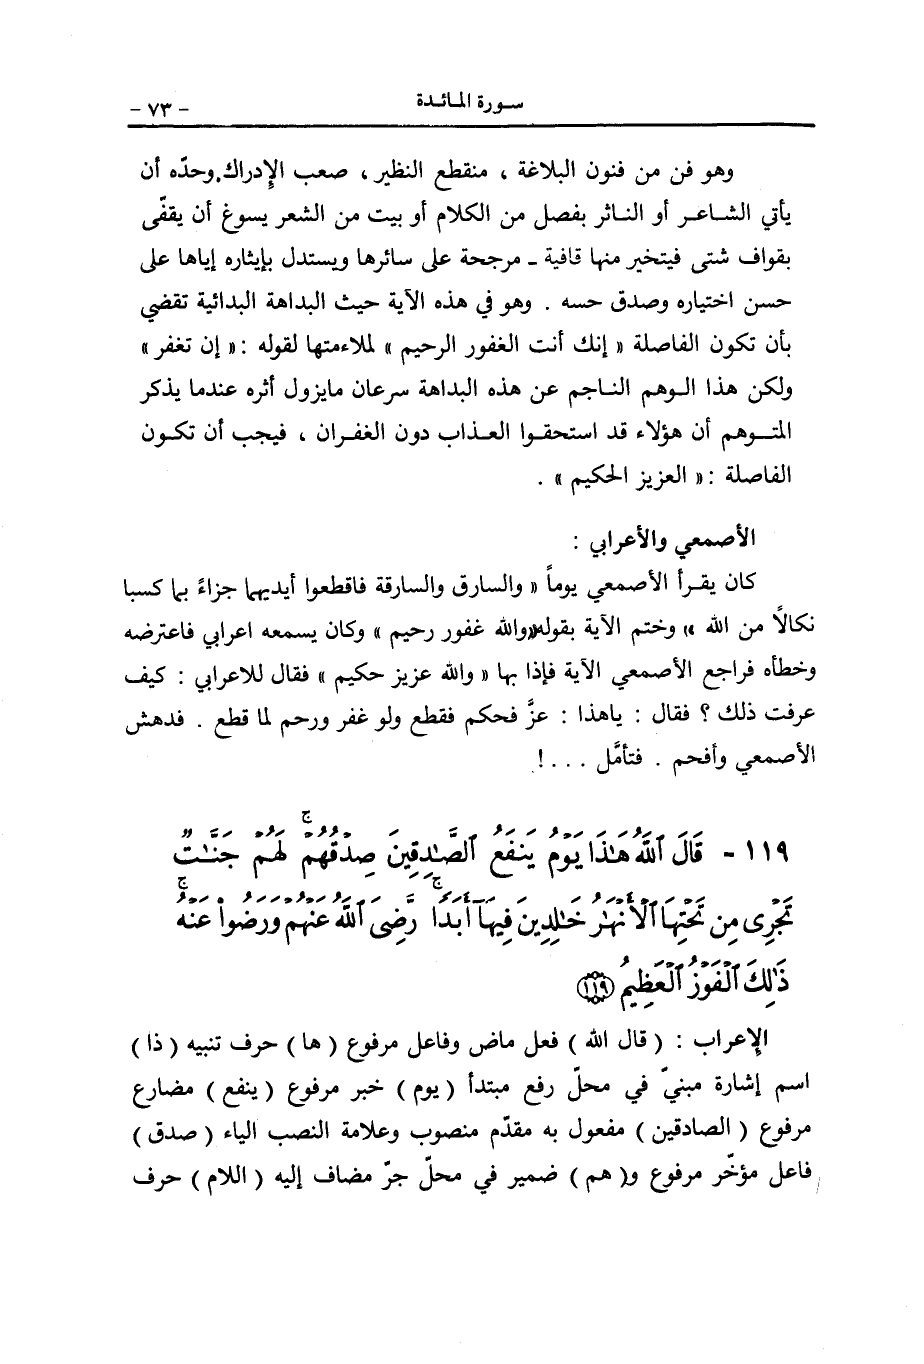 سورة المائدة - ٧٣ -
وهو فن من فنون البلاغة ، منقطع النظير ، صعب الإدراك. وحدّه أن
يأتي الشاعر أو الناثر بفصل من الكلام أو بيت من الشعر يسوغ أن يقفّى
بقواف شتى فيتخير منها قافية ـ مرجحة على سائرها ويستدل بإيثاره إياها على
حسن اختياره وصدق حسه . وهو في هذه الآية حيث البداهة البدائية تقضي
بأن تكون الفاصلة « إنك أنت الغفور الرحيم » لملاءمتها لقوله :« إن تغفر »
ولكن هذا الوهم الناجم عن هذه البداهة سرعان مايزول أثره عندما يذكر
المتوهم أن هؤلاء قد استحقوا العذاب دون الغفران ، فيجب أن تكون
الفاصلة :« العزيز الحكيم » .
الأصمعي والأعرابي :
كان يقرأ الأصمعي يوماً « والسارق والسارقة فاقطعوا أيديهما جزاءً بما كسبا
نكالًا من الله » وختم الآية بقوله«والله غفور رحيم » وكان يسمعه اعرابي فاعترضه
وخطأه فراجع الأصمعي الآية فإذا بها « والله عزيز حكيم » فقال للاعرابي : كيف
عرفت ذلك ؟ فقال : ياهذا : عزَّ فحكم فقطع ولو غفر ورحم لما قطع . فدهش
الأصمعي وأفحم . فتأمَّل . . . !
١١٩ - قَالَ ٱللَّهُ هَٰذَا يَوْمُ يَنفَعُ ٱلصَّٰدِقِينَ صِدْقُهُمْ ۚ لَهُمْ جَنَّٰتٌ
تَجْرِى مِن تَحْتِهَا ٱلْأَنْهَٰرُ خَٰلِدِينَ فِيهَآ أَبَدًا ۚ رَّضِىَ ٱللَّهُ عَنْهُمْ وَرَضُوا۟ عَنْهُ ۚ
ذَٰلِكَ ٱلْفَوْزُ ٱلْعَظِيمُ ﴿١١٩﴾
الإعراب : ( قال الله ) فعل ماض وفاعل مرفوع ( ها ) حرف تنبيه ( ذا )
اسم إشارة مبنيّ في محلّ رفع مبتدأ ( يوم ) خبر مرفوع ( ينفع ) مضارع
مرفوع ( الصادقين ) مفعول به مقدّم منصوب وعلامة النصب الياء ( صدق )
فاعل مؤخّر مرفوع و( هم ) ضمير في محلّ جرّ مضاف إليه ( اللام ) حرف